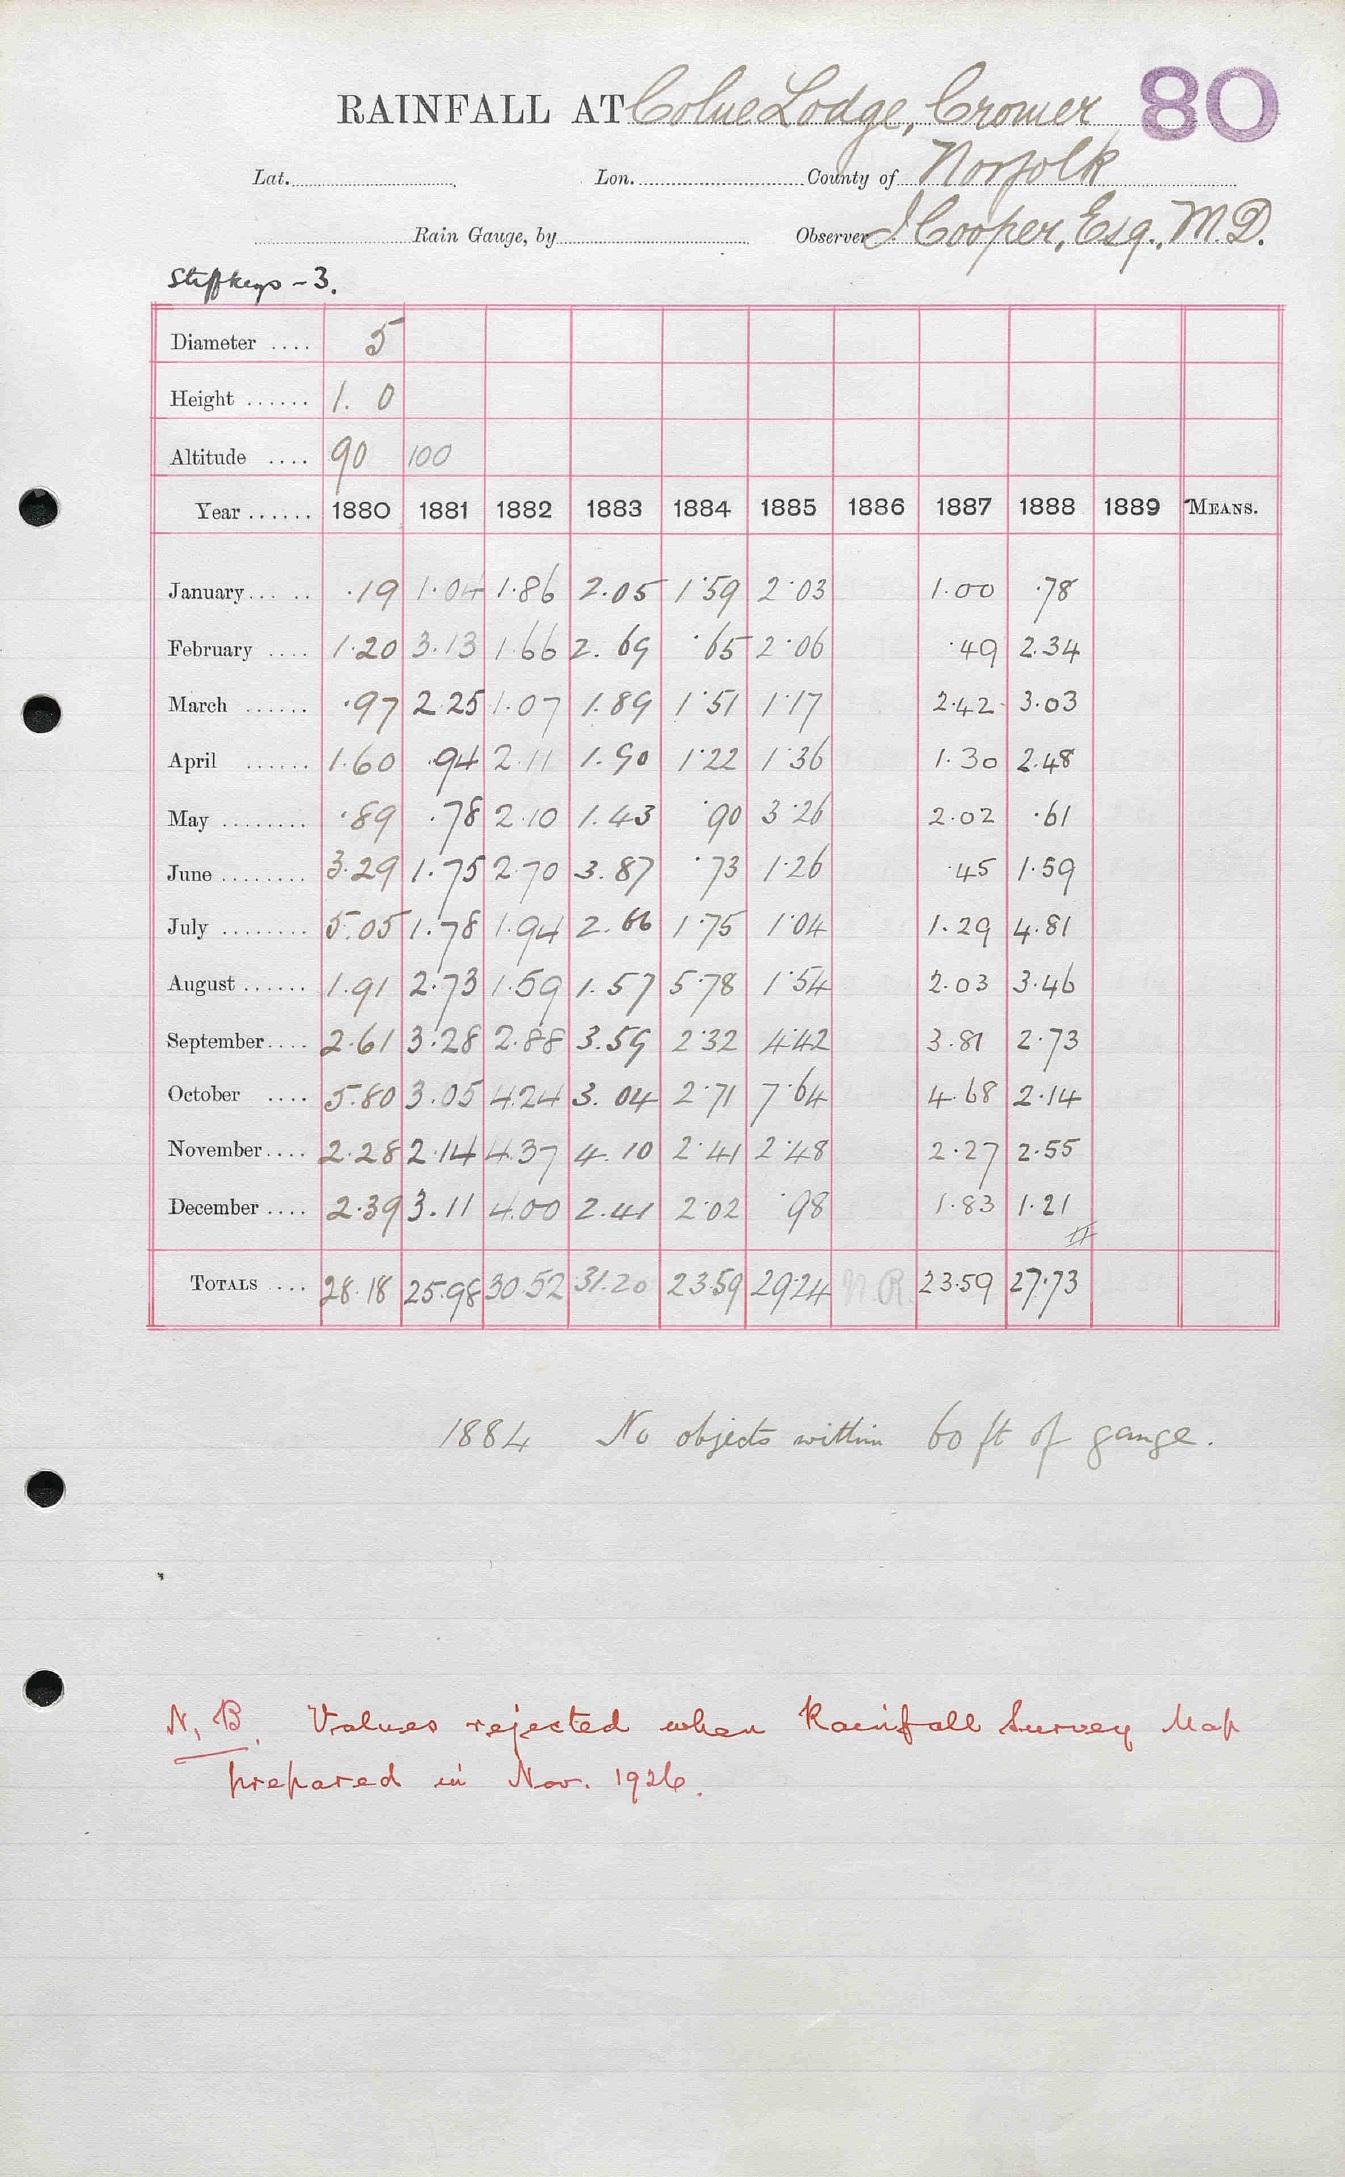 RAINFALL AT Colne Lodge, Cromer 80
Lat. Lon. County of Norfolk
Rain Gauge, by Observer J Cooper, Esq., M.D.
Stiffkeys - 3.
Diameter .... 5
Height ...... 1. 0
Altitude .... 90 100
Year ...... 1880 1881 1882 1883 1884 1885 1886 1887 1888 1889 MEANS.
January... .. ·19 1·04 1·86 2.05 1·59 2·03 1.00 ·78
February .... 1·20 3.13 1.66 2. 69 ·65 2·06 ·49 2.34
March ...... ·97 2.25 1.07 1.89 1·51 1·17 2.42 3.03
April ...... 1.60 ·94 2.11 1.90 1·22 1·36 1.30 2.48
May ........ ·89 ·78 2.10 1.43 ·90 3·26 2.02 ·61
June ........ 3.29 1.75 2.70 3.87 ·73 1·26 ·45 1.59
July ........ 5.05 1.78 1.94 2.66 1·75 1·04 1.29 4.81
August ...... 1.91 2.73 1.59 1.57 5·78 1·54 2.03 3.46
September.... 2.61 3.28 2.88 3.59 2·32 4·42 3.81 2.73
October .... 5.80 3.05 4.24 3.04 2·71 7·64 4.68 2.14
November.... 2.28 2.14 4.37 4.10 2·41 2·48 2.27 2.55
December .... 2.39 3.11 4.00 2.41 2·02 ·98 1.83 1.21
TOTALS .... 28.18 25.98 30.52 31.20 23.59 29.24 N.R. 23.59 27.73
1884 No objects within 60 ft of gauge.
N.B. Values rejected when Rainfall Survey Map
prepared in Nov. 1926.